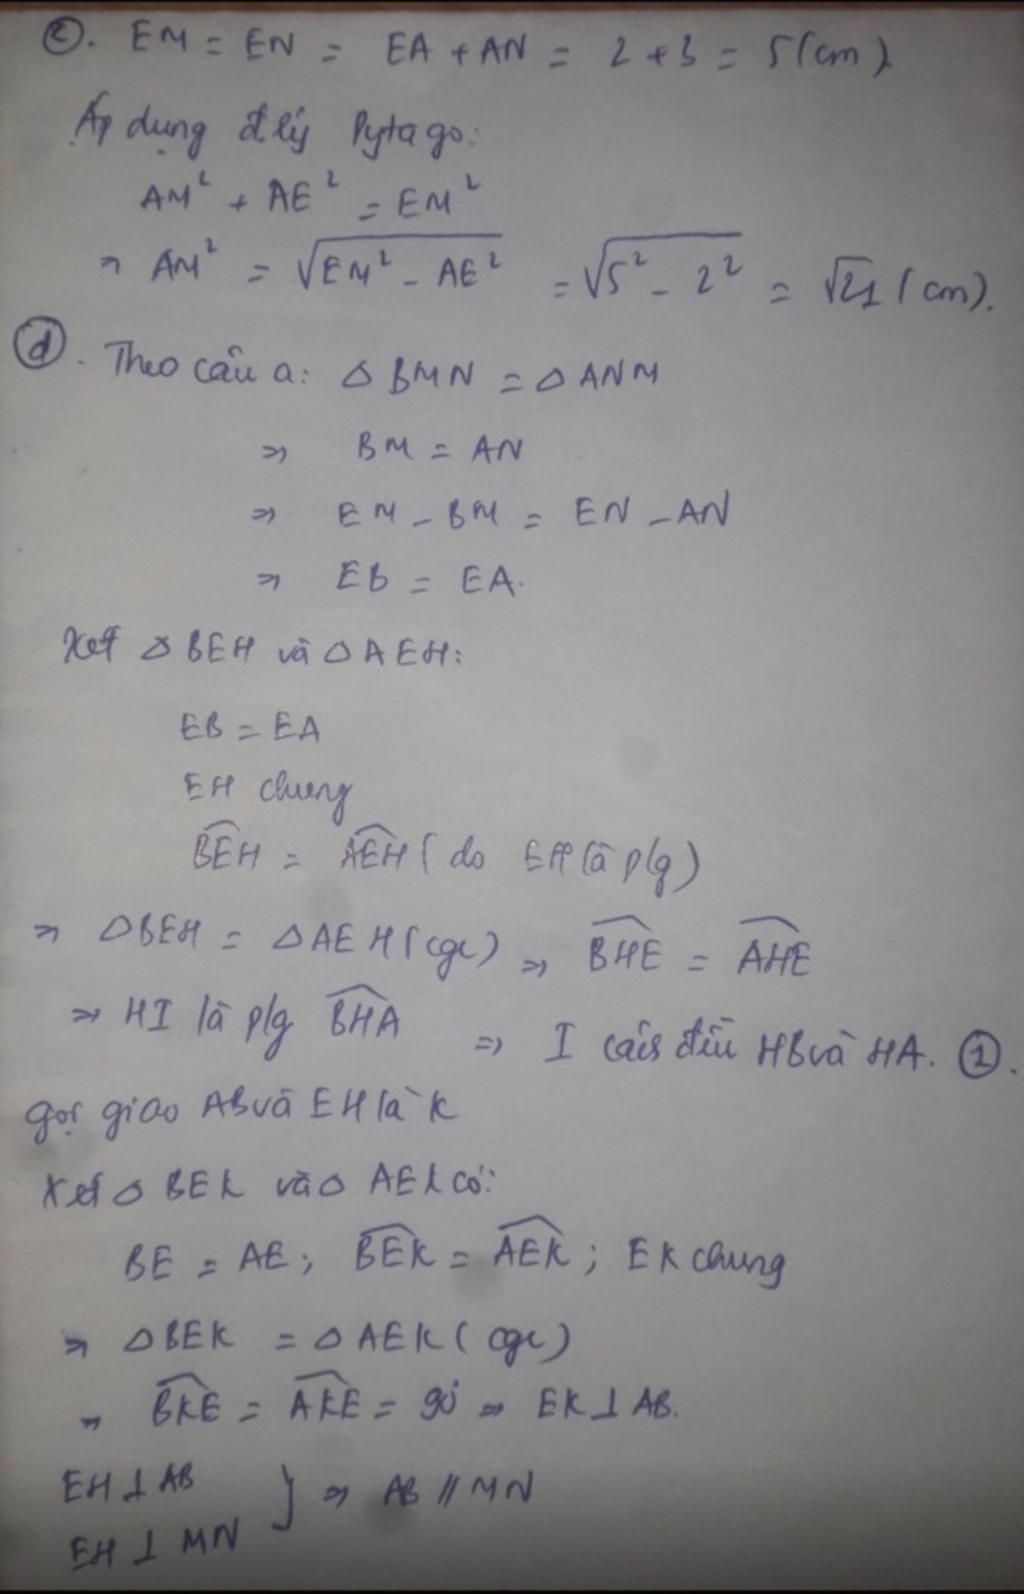 c. EM = EN = EA + AN = 2 + 3 = 5 (cm)
Áp dụng đ.lý Pytago:
AM² + AE² = EM²
⇒ AM² = √EM² - AE² = √5² - 2² = √21 (cm).
d. Theo câu a: △BMN = △ANM
⇒ BM = AN
⇒ EM - BM = EN - AN
⇒ EB = EA.
Xét △BEH và △AEH:
EB = EA
EH chung
B̂EH = ÂEH (do EH là p/g)
⇒ △BEH = △AEH (cgc) ⇒ B̂HE = ÂHE
⇒ HI là p/g B̂HA ⇒ I cách đều HB và HA. ①.
gọi giao AB và EH là K
Xét △BEK và △AEK có:
BE = AE; B̂EK = ÂEK; EK chung
⇒ △BEK = △AEK (cgc)
⇒ B̂KE = ÂKE = 90° ⇒ EK ⊥ AB.
EH ⊥ AB
EH ⊥ MN } ⇒ AB // MN